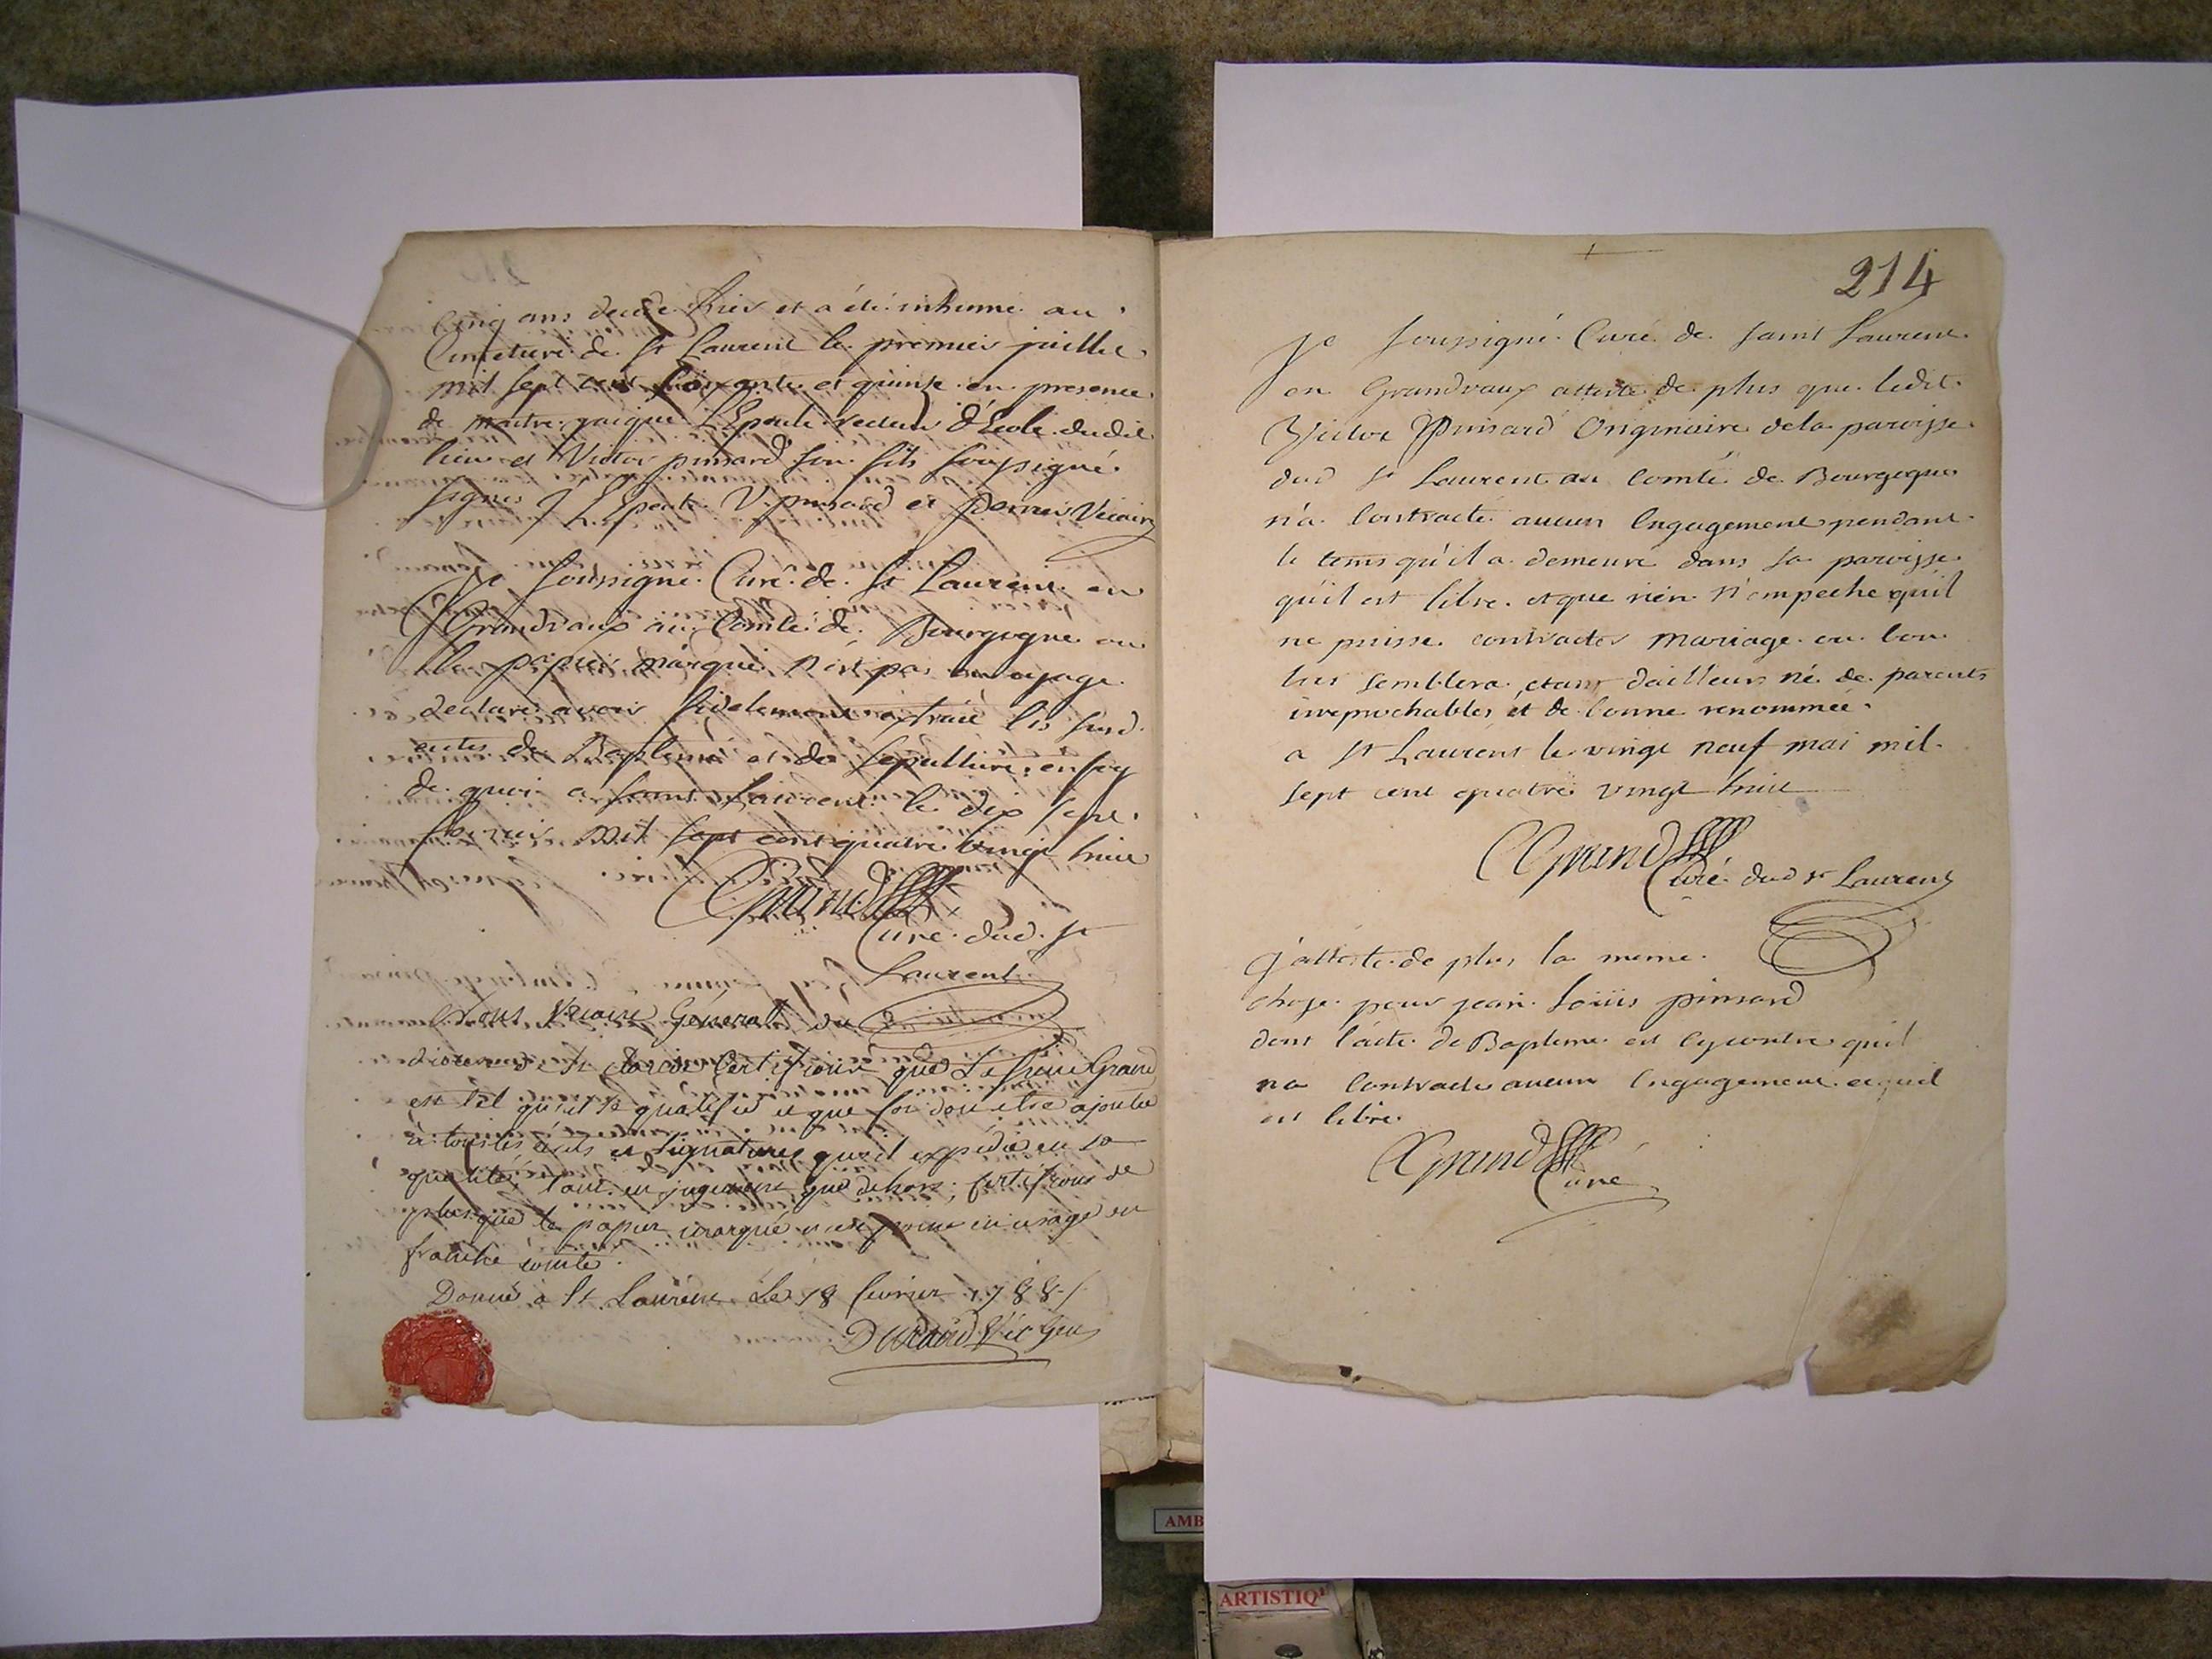 Cinq ans decede hier et a été inhumé au
Cimetiere de St Laurent le premier juillet
mil sept cent soixante et quinse en presence
de maitre jaique L'Epeule recteur d'Ecole dudit
lieu et Victor pinsard son fils soussigné
signes J L'Epeule V. pinsard et perrier Vicaire
Je soussigné Curé de St Laurent en
Grandvaux au Comté de Bourgogne ou
le papier marqué n'est pas en usage
declare avoir fidelement extrait les susd.
actes de Bapteme et de sepulture, en foy
de quoi a saint Laurent le dix sept
fevrier mil sept cent quatre vingt huit
Grand
Curé dud. St
Laurent
Nous Vicaire Général du
diocese de St Claude Certifions que Le sieur Grand
est tel qu'il se qualifie et que foi doit etre ajoutée
à tous les écrits et signatures qu'il expédie en sa
qualité, tant en jugement que dehors; certifions de
plus que le papier marqué n'est point en usage en
franche comté.
Donné à St Laurent Le 18 fevrier 1788
Vic Gen
214
Je soussigné Curé de saint Laurent
en Grandvaux atteste de plus que ledit
Victor Pinsard Originaire de la paroisse
dud St Laurent au Comté de Bourgogne
n'a Contracté aucun Engagement pendant
le tems qu'il a demeuré dans sa paroisse
qu'il est libre. et que rien n'empeche qu'il
ne puisse contracter mariage ou bon
lui semblera, etant d'ailleurs né de parents
irreprochables et de bonne renommée.
a St Laurent le vingt neuf mai mil
sept cent quatre vingt huit
Grand
Curé dud St Laurent
J'atteste de plus la meme
chose pour jean Loüis pinsard
dont l'acte de Bapteme est cy contre qu'il
na Contracté aucun Engagement et quil
est libre.
Grand
Curé
AMB
ARTISTIQ